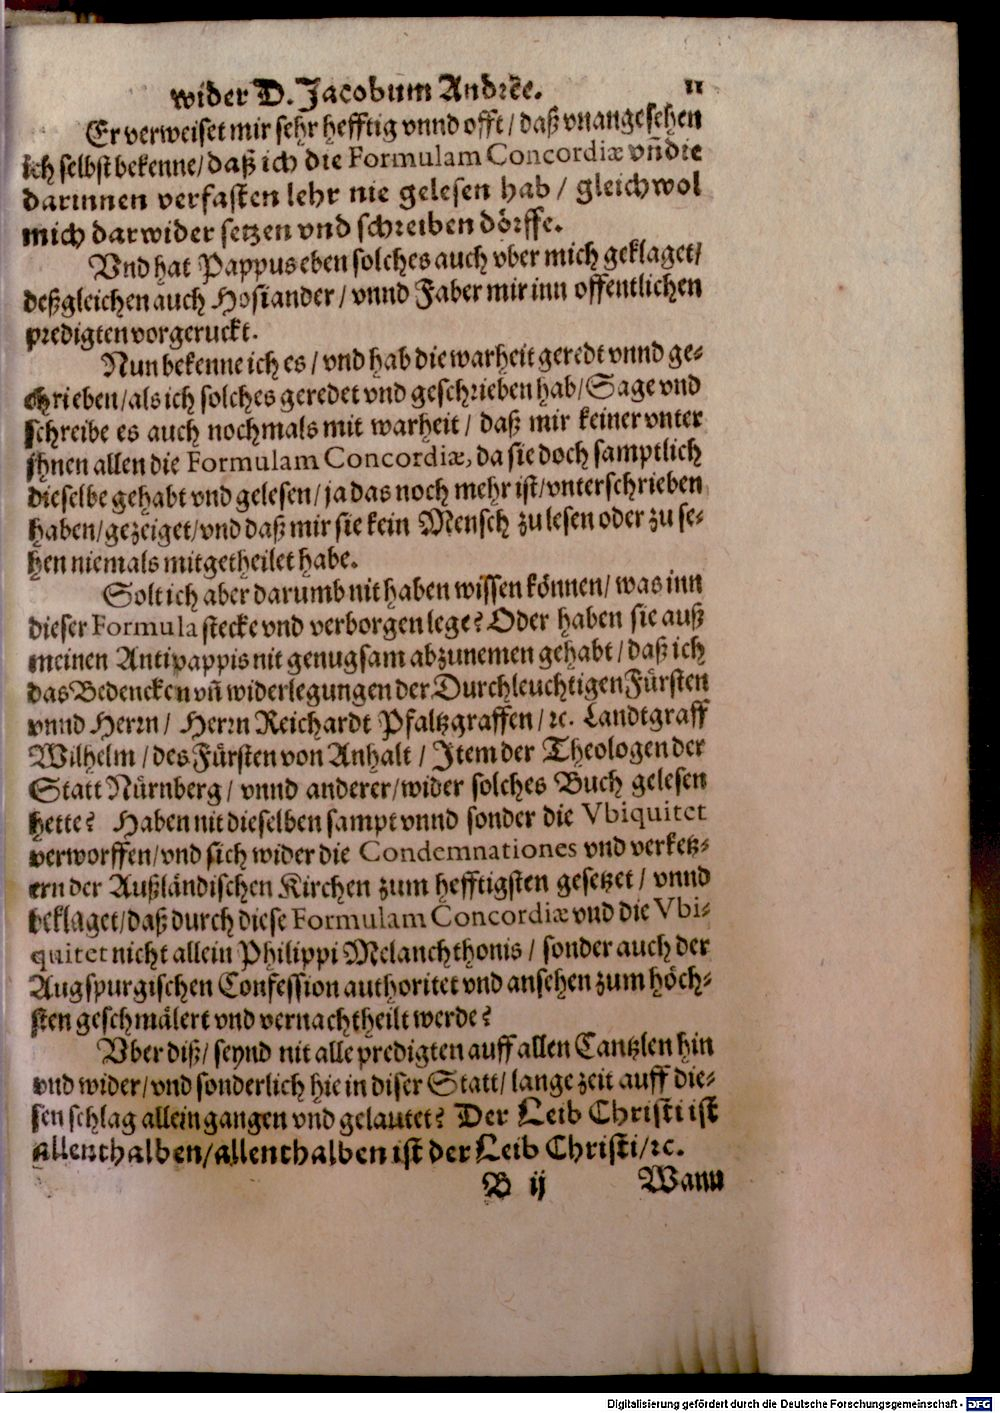 wider D. Jacobum Andree. 11
Er verweiset mir sehr hefftig vnnd offt / daß vnangesehen
ich selbst bekenne / daß ich die Formulam Concordiæ vñ die
darinnen verfasten lehr nie gelesen hab / gleichwol
mich darwider setzen vnd schreiben dörffe.
Vnd hat Pappus eben solches auch vber mich geklaget /
deßgleichen auch Hosiander / vnnd Faber mir inn offentlichen
predigten vorgeruckt.
Nun bekenne ich es / vnd hab die warheit geredt vnnd ge-
schrieben / als ich solches geredet vnd geschrieben hab / Sage vnd
schreibe es auch nochmals mit warheit / daß mir keiner vnter
jhnen allen die Formulam Concordiæ, da sie doch samptlich
dieselbe gehabt vnd gelesen / ja das noch mehr ist / vnterschrieben
haben / gezeiget / vnd daß mir sie kein Mensch zu lesen oder zu se-
hen niemals mitgetheilet habe.
Solt ich aber darumb nit haben wissen können / was inn
dieser Formula stecke vnd verborgen lege? Oder haben sie auß
meinen Antipappis nit genugsam abzunemen gehabt / daß ich
das Bedencken vñ widerlegungen der Durchleuchtigen Fürsten
vnnd Herrn / Herrn Reichardt Pfaltzgraffen / ꝛc. Landtgraff
Wilhelm / des Fürsten von Anhalt / Item der Theologen der
Statt Nürnberg / vnnd anderer / wider solches Buch gelesen
hette? Haben nit dieselben sampt vnnd sonder die Vbiquitet
verworffen / vnd sich wider die Condemnationes vnd verketz-
ern der Außländischen Kirchen zum hefftigsten gesetzet / vnnd
beklaget / daß durch diese Formulam Concordiæ vnd die Vbi-
quitet nicht allein Philippi Melanchthonis / sonder auch der
Augspurgischen Confession authoritet vnd ansehen zum höch-
sten geschmälert vnd vernachtheilt werde?
Vber diß / seynd nit alle predigten auff allen Cantzlen hin
vnd wider / vnd sonderlich hie in diser Statt / lange zeit auff die-
sen schlag allein gangen vnd gelautet? Der Leib Christi ist
allenthalben / allenthalben ist der Leib Christi / ꝛc.
B ij Wann
Digitalisierung gefördert durch die Deutsche Forschungsgemeinschaft - DFG